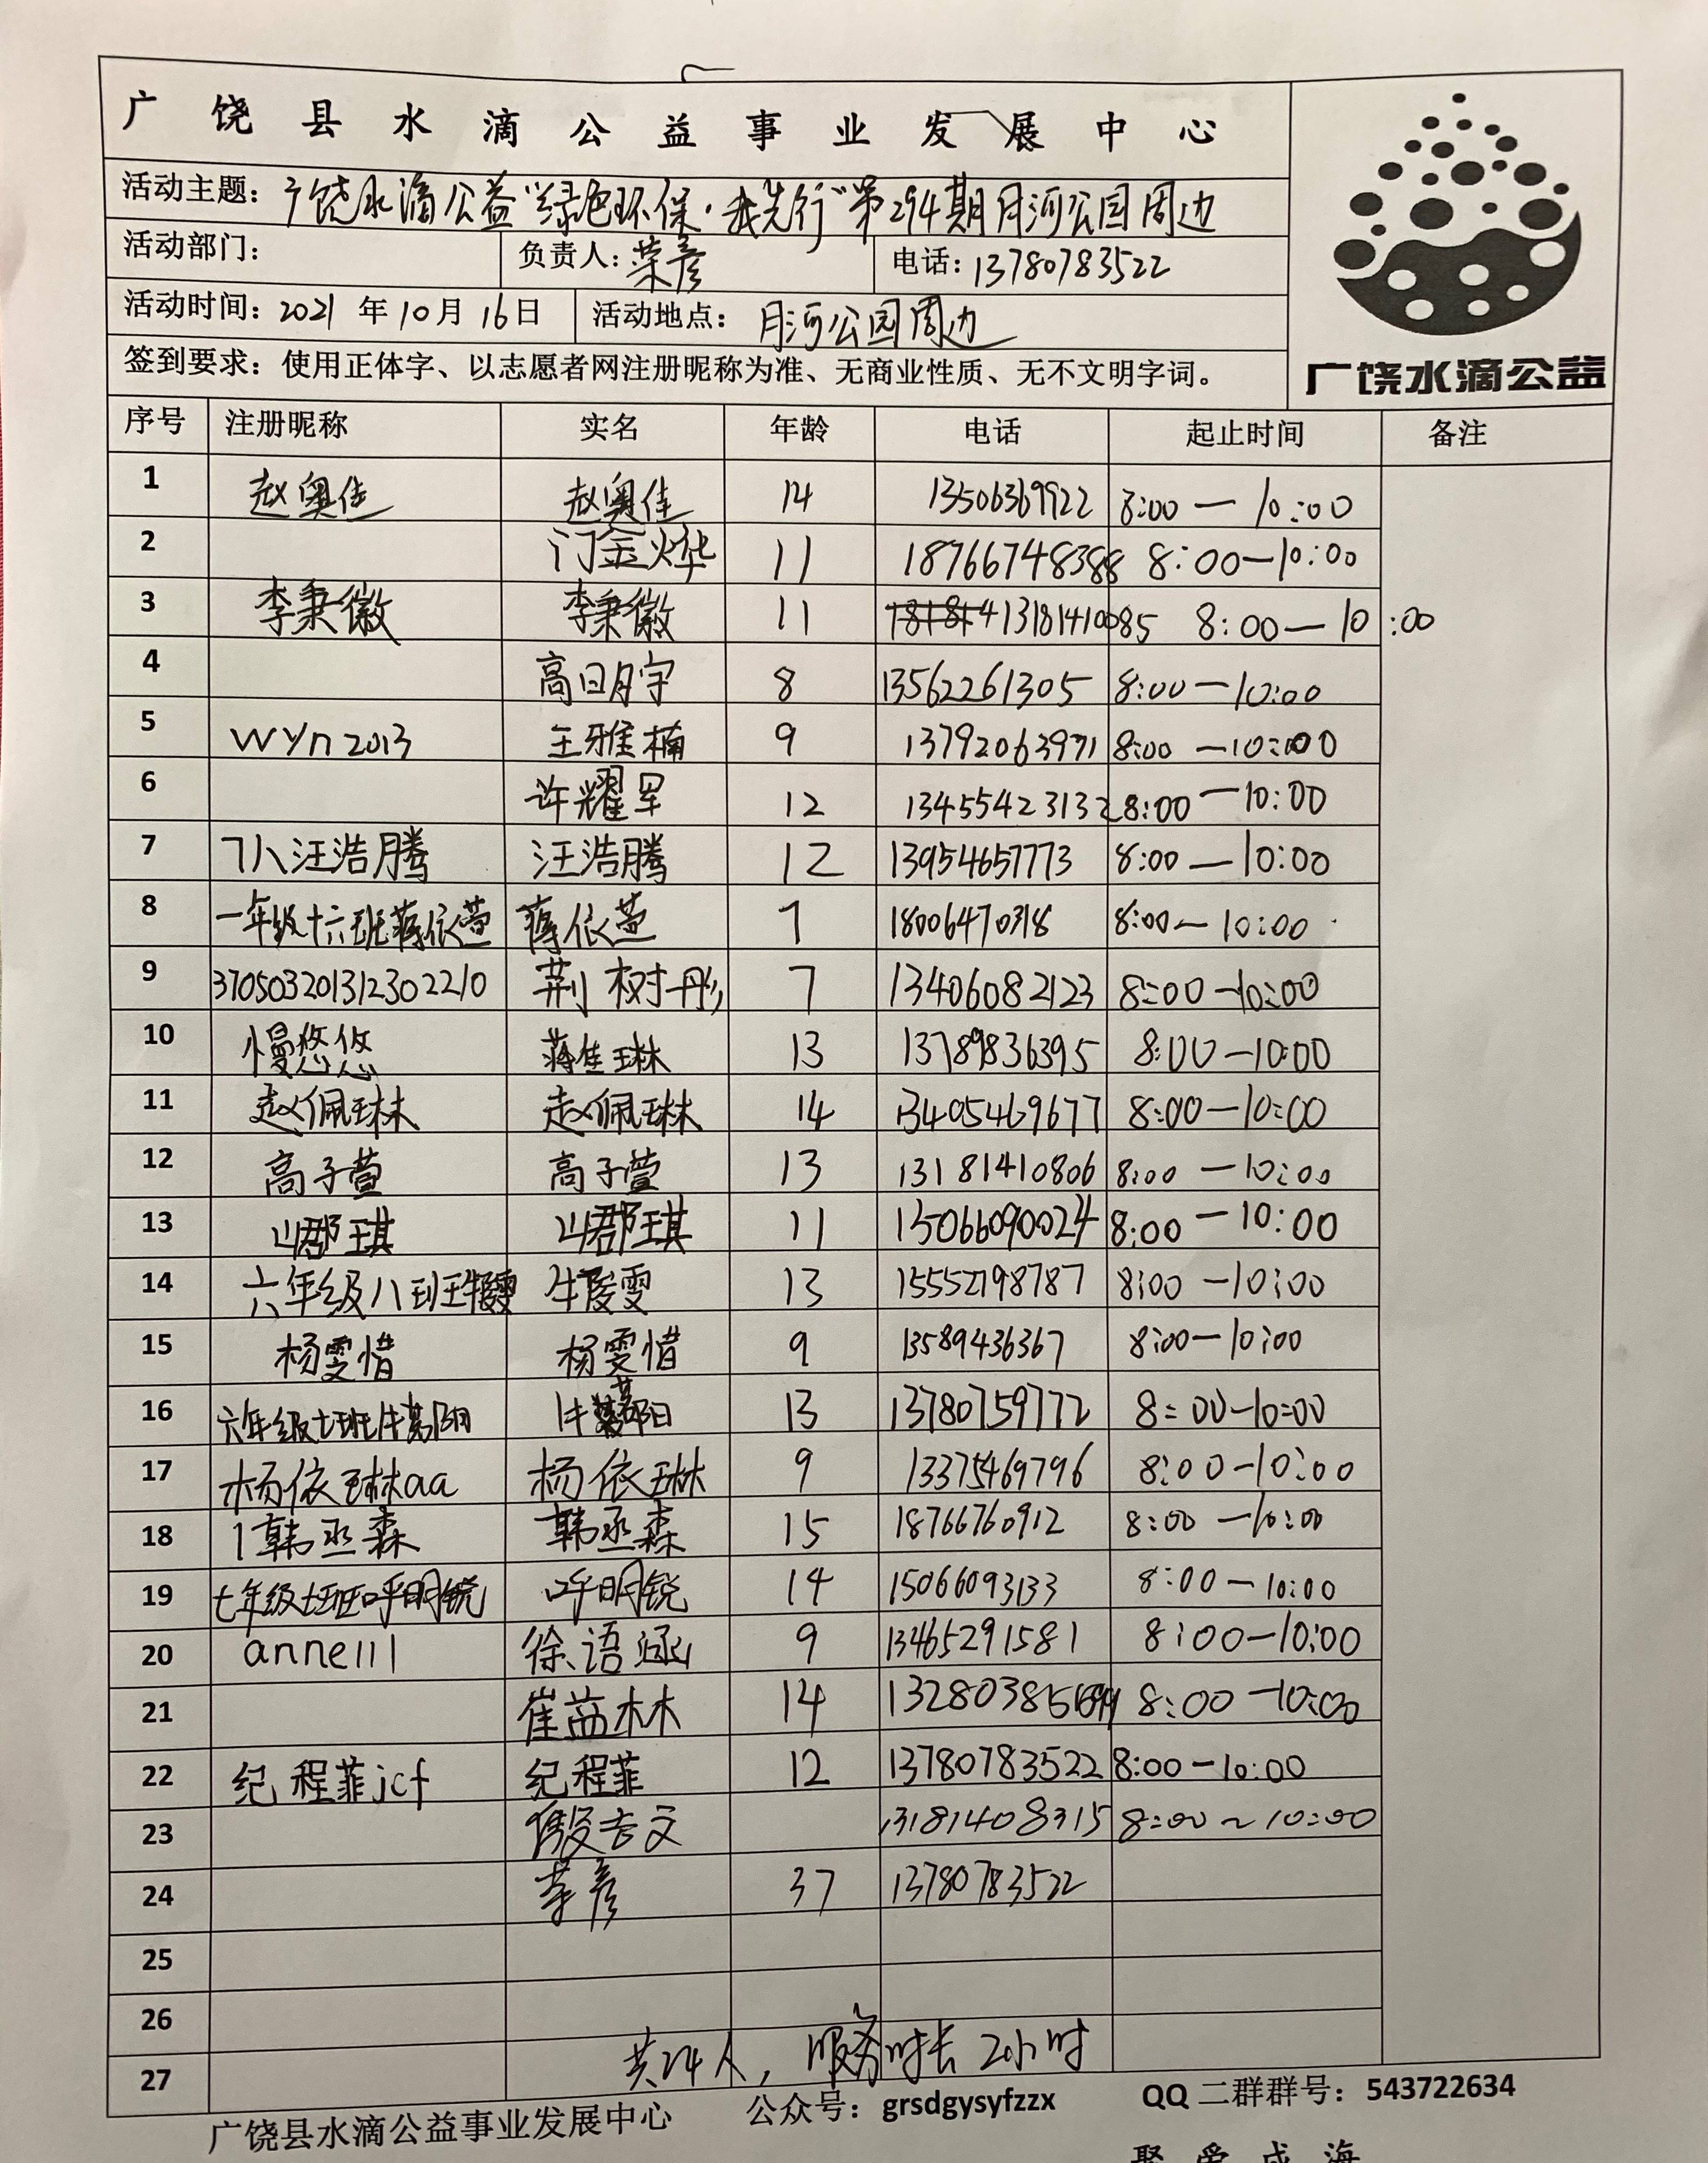 广饶县水滴公益事业发展中心
活动主题：广饶水滴公益“绿色环保·我先行”第294期月河公园周边
活动部门： 负责人：荣彦 电话：13780783522
活动时间：2021年10月16日 活动地点：月河公园周边
签到要求：使用正体字、以志愿者网注册昵称为准、无商业性质、无不文明字词。
广饶水滴公益
序号 注册昵称 实名 年龄 电话 起止时间 备注
1 赵奥佳 赵奥佳 14 13506369922 8:00—10:00
2 门金烨 11 18766748388 8:00—10:00
3 李秉徽 李秉徽 11 13181410085 8:00—10:00
4 高日月宇 8 13562261305 8:00—10:00
5 wyn2013 王雅楠 9 13792063971 8:00—10:00
6 许耀罕 12 13455423132 8:00—10:00
7 7八汪浩腾 汪浩腾 12 13954657773 8:00—10:00
8 一年级十六班蒋依萱 蒋依萱 7 18006470318 8:00—10:00
9 370503201312302210 荆树彤 7 13406082123 8:00—10:00
10 慢悠悠 蒋佳琳 13 13789836395 8:00—10:00
11 赵佩琳 赵佩琳 14 13405469677 8:00—10:00
12 高子萱 高子萱 13 13181410806 8:00—10:00
13 山郡琪 山郡琪 11 15066090024 8:00—10:00
14 六年级八班 雯 13 15552198787 8:00—10:00
15 杨雯惜 杨雯惜 9 13589436367 8:00—10:00
16 六年级七班牛葛阳 牛 阳 13 13780759772 8:00—10:00
17 杨依琳aa 杨依琳 9 13375469796 8:00—10:00
18 1韩丞森 韩丞森 15 18766760912 8:00—10:00
19 七年级七班呼明锐 呼明锐 14 15066093133 8:00—10:00
20 anne111 徐语涵 9 13465291581 8:00—10:00
21 崔益林 14 132803856 8:00—10:00
22 纪程菲jcf 纪程菲 12 13780783522 8:00—10:00
23 文 13181408315 8:00~10:00
24 荣彦 37 13780783522
25
26
27 共24人，服务时长2小时
广饶县水滴公益事业发展中心 公众号：grsdgysyfzzx QQ二群群号：543722634
聚爱成海